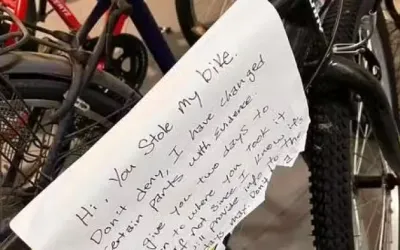 Hi, You Stole my bike.
Don't deny, I have changed
certain parts with evidence.
give you two days to
to where you took it.
if not since I know it's
provide info to the